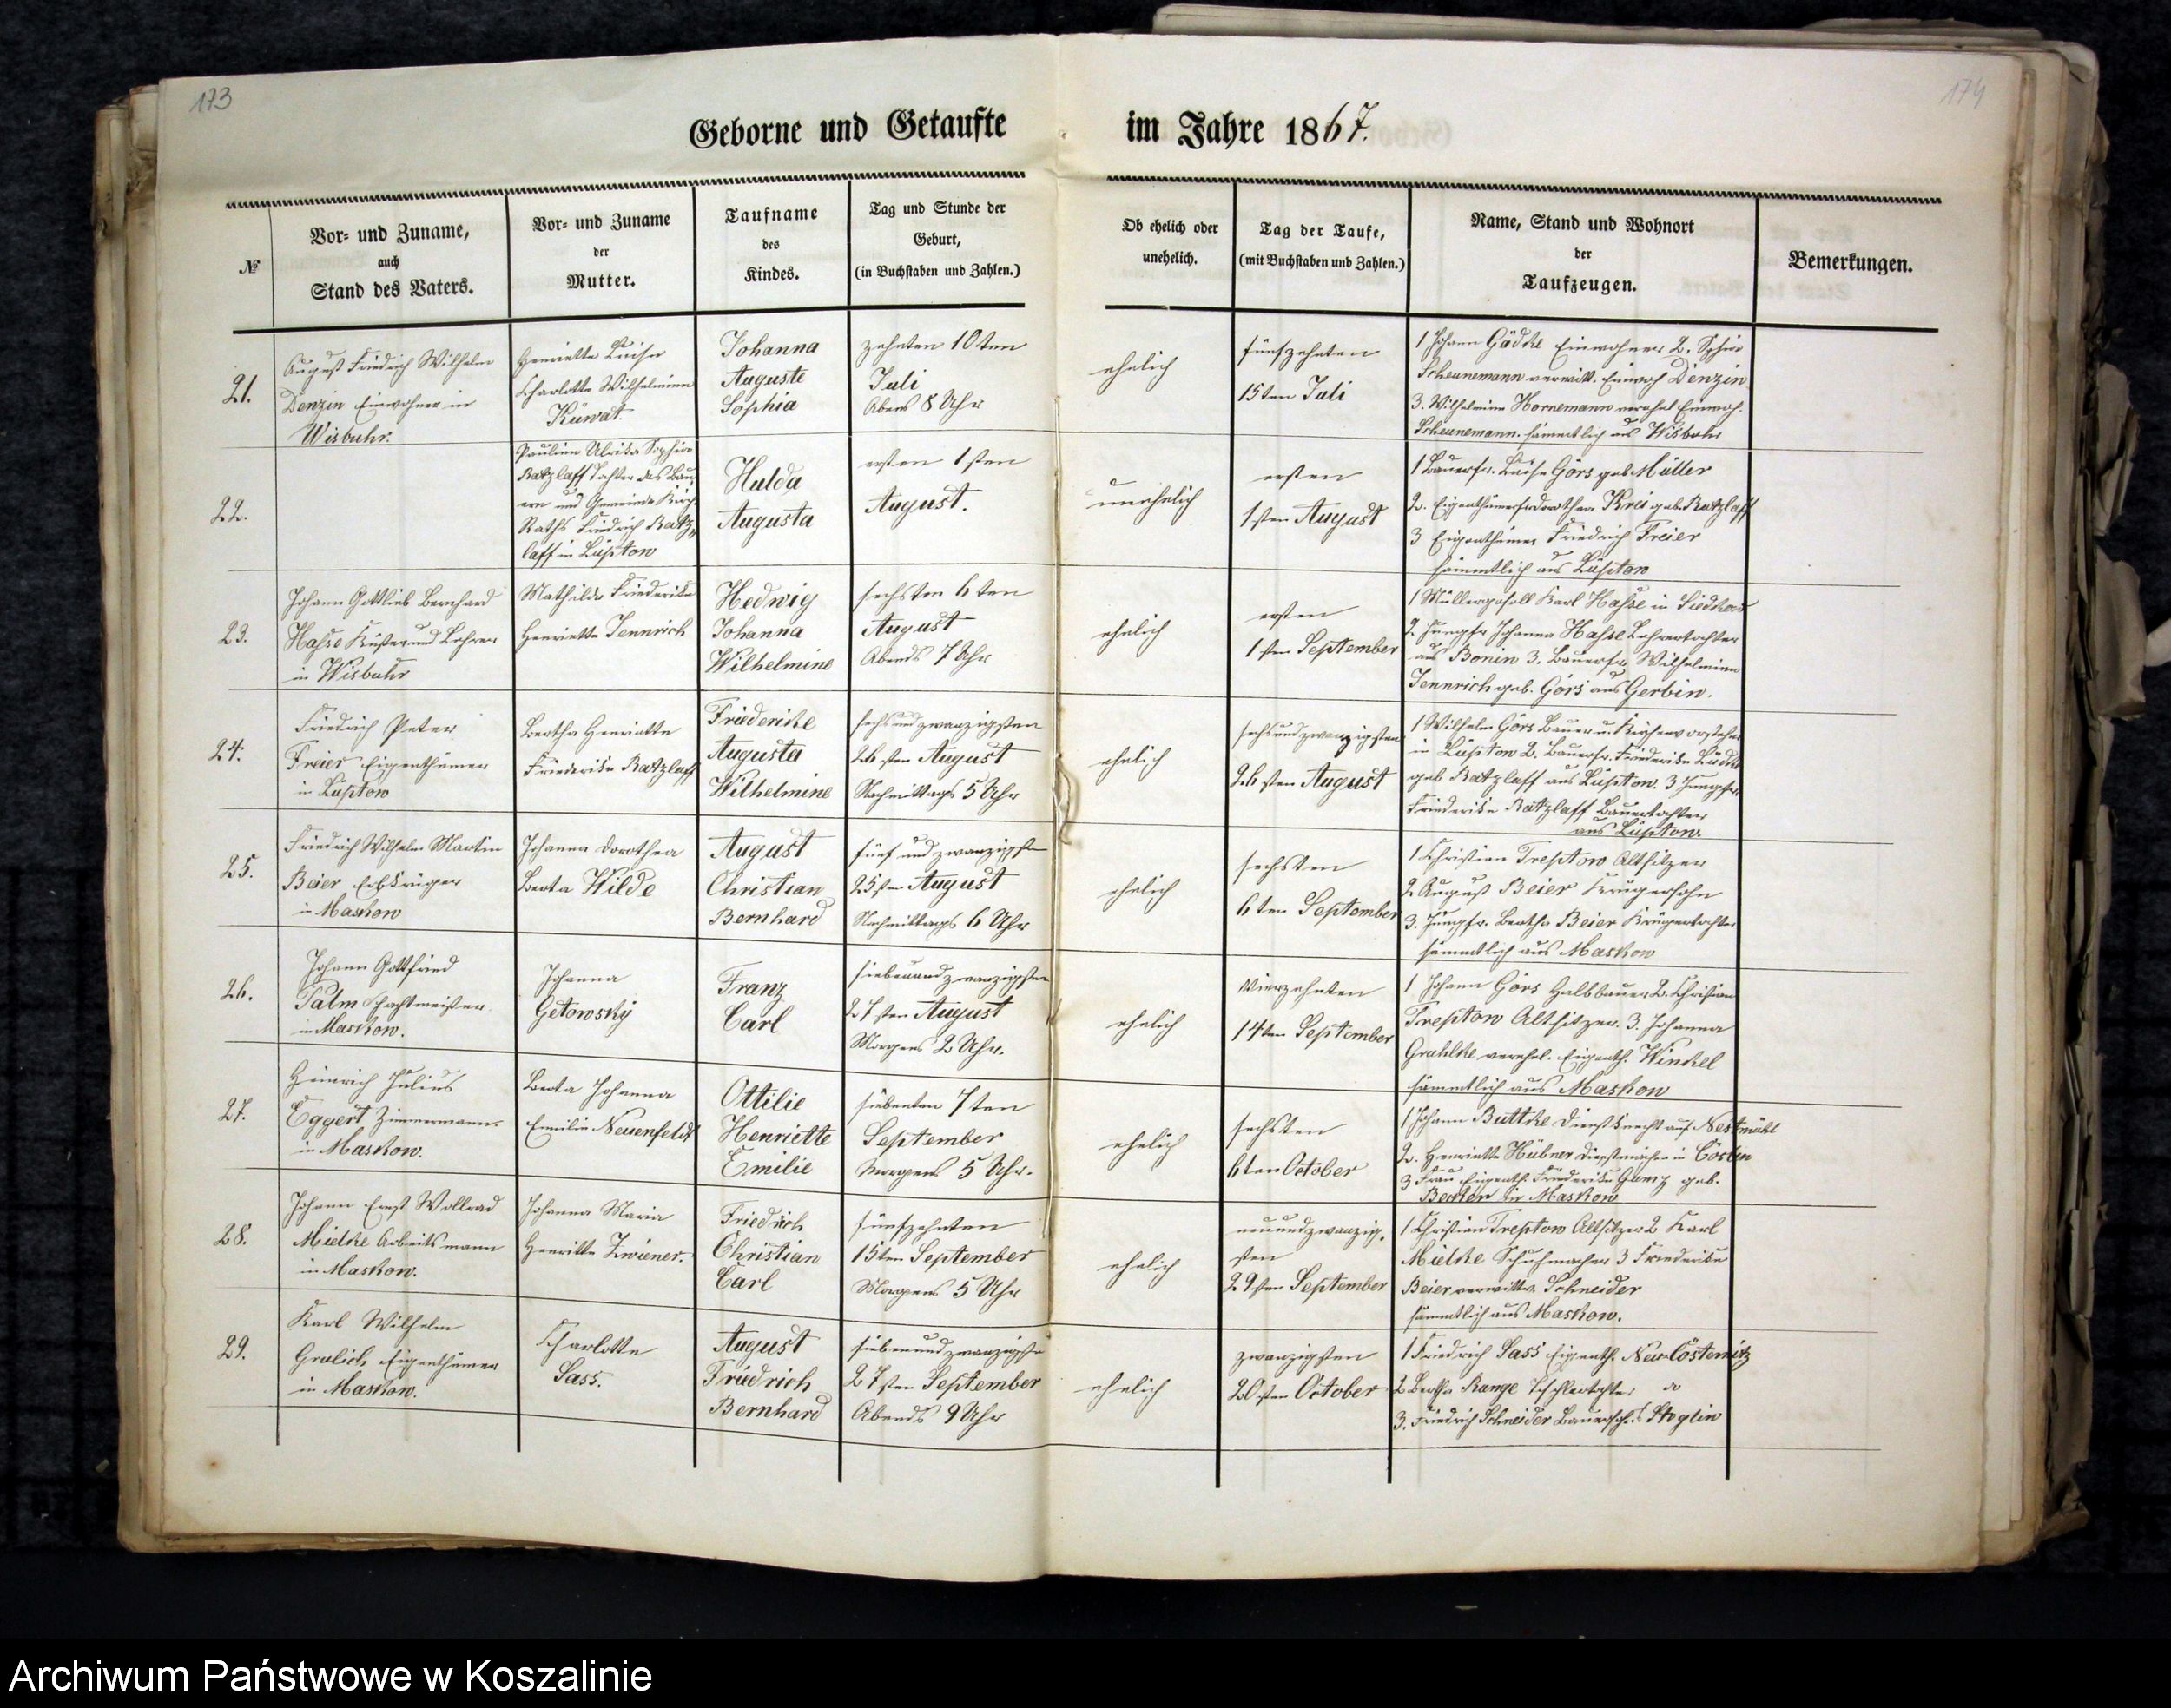 173
174
Geborne und Getaufte im Jahre 1867.
№
Vor- und Zuname,
auch
Stand des Vaters.
Vor- und Zuname
der
Mutter.
Taufname
des
Kindes.
Tag und Stunde der
Geburt,
(in Buchstaben und Zahlen.)
Ob ehelich oder
unehelich.
Tag der Taufe,
(mit Buchstaben und Zahlen.)
Name, Stand und Wohnort
der
Taufzeugen.
Bemerkungen.
21.
August Friedrich Wilhelm
Denzin Einwohner in
Wisbuhr.
Henriette Luise
Charlotte Wilhelmine
Küwat.
Johanna
Auguste
Sophia
zehnten 10ten
Juli
Abens 8 Uhr
ehelich
fünfzehnten
15ten Juli
1 Johann Gädtke Einwohner 2. Sophie
Scheunemann verwitt. Einwoh Denzin
3. Wilhelmine Hornemann verehel Einwoh.
Scheunemann. sämmtlich aus Wisbuhr
22.
Pauline Ulrike Sophie
Ratzlaff Tochter des Bau
ern und Gemeinde Kirch
Raths Friedrich Ratz
laff in Lüptow
Hulda
Augusta
ersten 1sten
August.
unehelich
ersten
1sten August
1 Bauerfr. Luise Görs geb Müller
2. Eigenthümerfr Dorothea Krei geb. Ratzlaff
3 Eigenthümer Friedrich Freier
sämmtlich aus Lüptow
23.
Johann Gottlieb Bernhard
Hasse Küster und Lehrer
in Wisbuhr
Mathilde Friederike
Henriette Jennrich
Hedwig
Johanna
Wilhelmine
sechsten 6ten
August
Abends 7 Uhr
ehelich
ersten
1sten September
1 Müllergesell Karl Hasse in
2 Jungfr Johanna Hasse Lehrertochter
aus Bonin 3. Bauerfr. Wilhelmine
Jennrich geb. Görs aus Gerbin.
24.
Friedrich Peter
Freier Eigenthümer
in Lüptow
Bertha Henriette
Friederike Ratzlaff
Friederike
Augusta
Wilhelmine
sechs und zwanzigsten
26sten August
Nachmittags 5 Uhr
ehelich
sechsundzwanzigsten
26sten August
1 Wilhelm Görs Bauer u. Kirchenvorsteher
in Lüptow 2. Bauerfr. Friederike Lüdtke
geb Ratzlaff aus Lüptow. 3 Jungfr.
Friederike Ratzlaff Bauertochter
aus Lüptow.
25.
Friedrich Wilhelm Martin
Beier Erbkrüger
in Maskow
Johanna Dorothea
Berta Wilde
August
Christian
Bernhard
fünf und zwanzigste
25sten August
Nachmittags 6 Uhr
ehelich
sechsten
6ten September
1 Christian Treptow Altsitzer
2 August Beier Krügersohn
3. Jungfr. Bertha Beier Krügertochter
sämmtlich aus Maskow
26.
Johann Gottfried
Palm Schachtmeister
in Maskow.
Johanna
Getowsky
Franz
Carl
siebenundzwanzigsten
27sten August
Morgens 2 Uhr.
ehelich
vierzehnten
14ten September
1 Johann Görs Halbbauer 2. Christian
Treptow Altsitzer. 3. Johanna
Grahlke verehel. Eigenth. Winkel
sämmtlich aus Maskow
27.
Heinrich Julius
Eggert Zimmermann.
in Maskow.
Berta Johanna
Emilie Neuenfeldt
Ottilie
Henriette
Emilie
siebenten 7ten
September
Morgens 5 Uhr.
ehelich
sechsten
6ten October
1 Johann Buttke Dienstknecht aus Nestmühl
2. Henriette Hübner Dienstmädchen in Cöslin
3 Frau Eigenth. Friederike geb.
in Maskow
28.
Johann Ernst Wollrad
Mielke Arbeitsmann
in Maskow.
Johanna Maria
Henritte Zwiener.
Friedrich
Christian
Carl
fünfzehnten
15ten September
Morgens 5 Uhr
ehelich
neunundzwanzig-
sten
29sten September
1 Christian Treptow Altsitzer 2 Karl
Mielke Schuhmacher 3 Friederike
Beier verwittw. Schneider
sämmtlich aus Maskow.
29.
Karl Wilhelm
Grulich Eigenthümer
in Maskow.
Charlotte
Sass.
August
Friedrich
Bernhard
siebenundzwanzigste
27sten September
Abends 9 Uhr
ehelich
zwanzigsten
20sten October
1 Friedrich Sass Eigenth. Neu-Cösternitz
2 Bertha Range Tischlertochter do
3. Friedrich Schneider Bauersohn
Archiwum Państwowe w Koszalinie